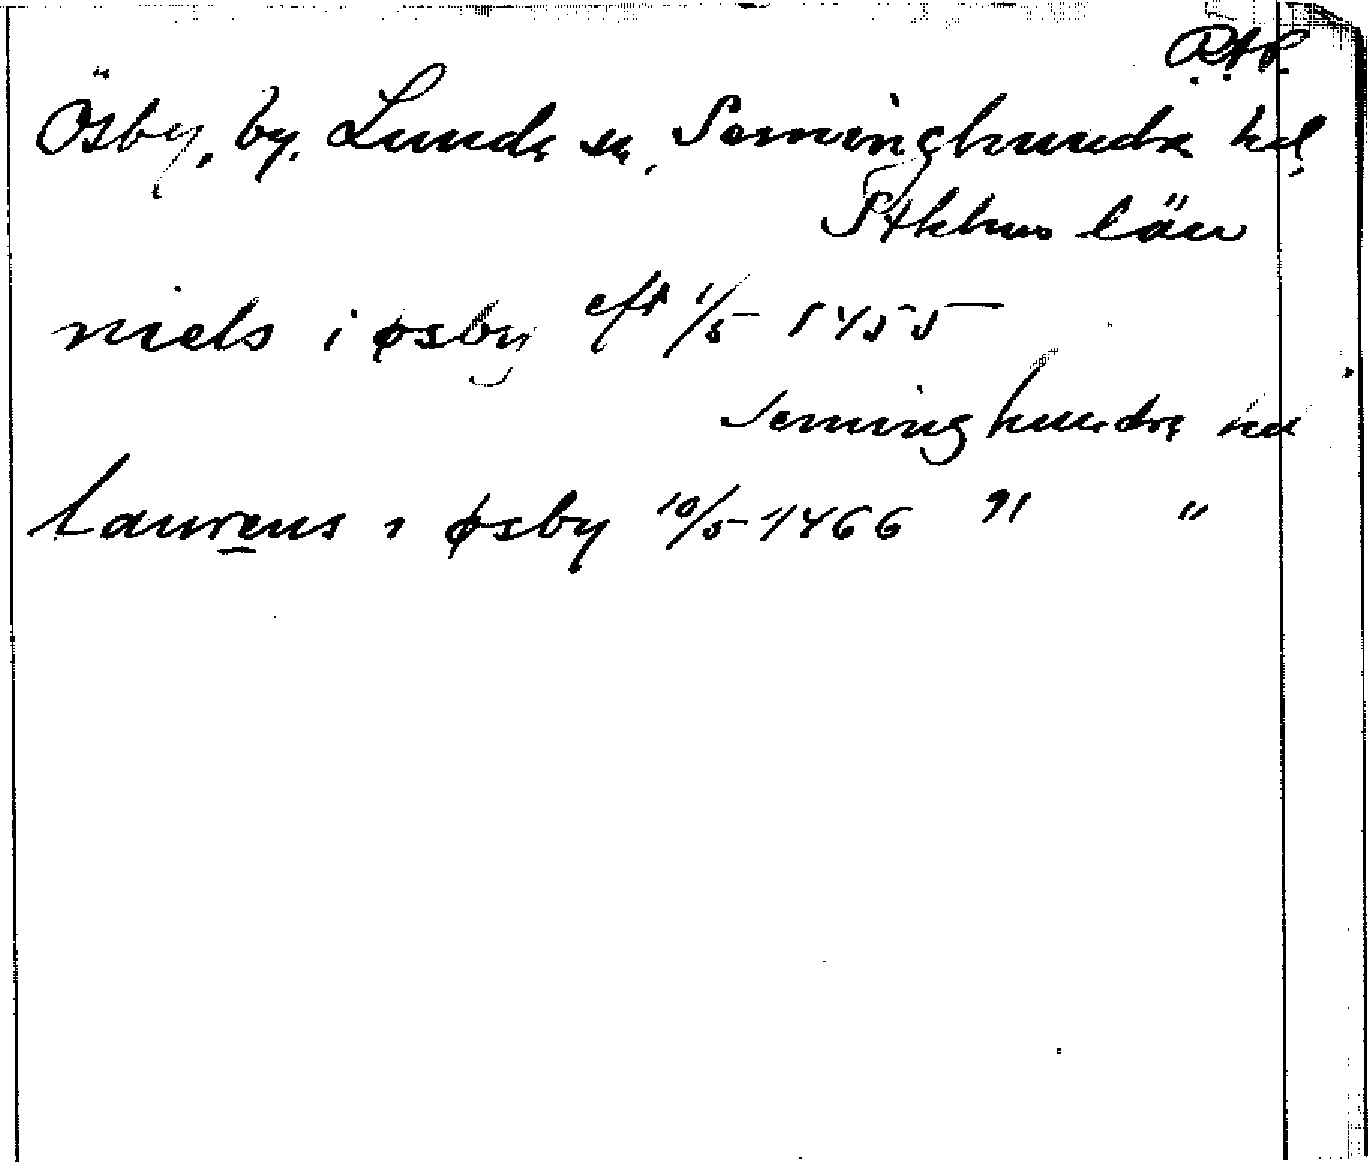 R.A.P.
Ösby, by, Lunda sn, Seminghundra hd
Sthlms län
niels i øsby eft 1/5 1455
Seminghundra hd
laurens i øsby 10/5 1466 " "